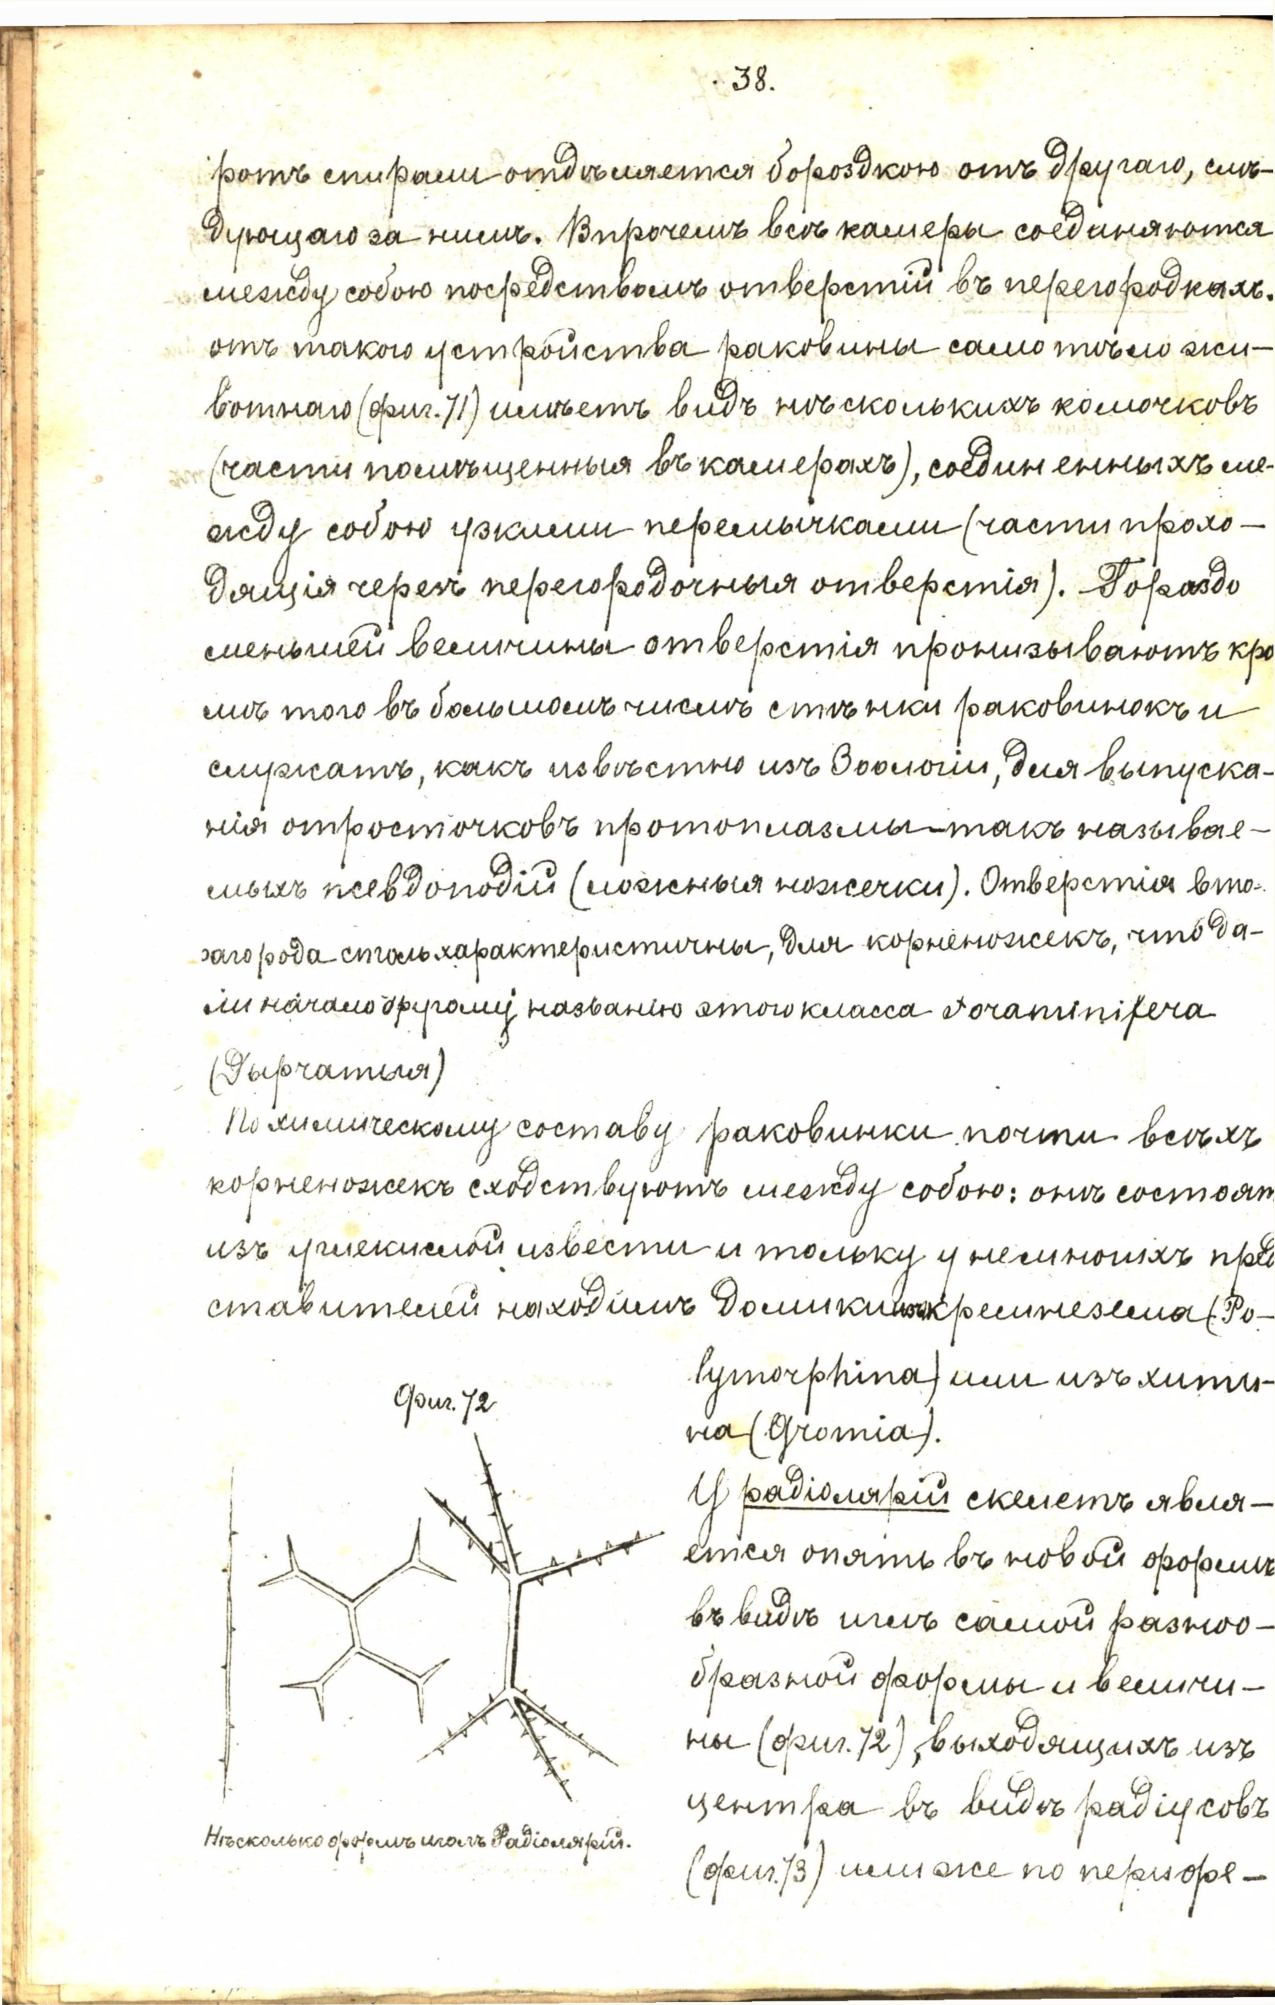 38.
ротъ спирали отдѣляется бороздкою отъ другаго, слѣ-
дующаго за нимъ. Впрочемъ всѣ камеры соединяются
между собою посредствомъ отверстій въ перегородкахъ.
отъ такого устройства раковины само тѣло жи-
вотнаго (фиг. 71) имѣетъ видъ нѣсколькихъ комочковъ
(части помѣщенныя въ камерахъ), соединенныхъ ме-
жду собою узкими перемычками (части прохо-
дящія через перегородочныя отверстія). Гораздо
меньшей величины отверстія пронизываютъ кро
мѣ того въ большомъ числѣ стѣнки раковинокъ и
служатъ, какъ извѣстно изъ Зоологіи, для выпуска-
нія отросточковъ протоплазмы-такъ называе-
мыхъ псевдоподій (ложныя ножечки). Отверстія вто-
раго рода столь характеристичны, для корненожекъ, что да-
ли начало другому названію этого класса Foraminifera
(Дырчатыя)
По химическому составу раковинки почти всѣхъ
корненожекъ сходствуютъ между собою: онѣ состоят
изъ углекислой извести и тольку у немногихъ пред
ставителей находимъ домики изъ кремнезема (Po-
lymorphina) или изъ хити-
на (Gromia).
У радіолярій скелетъ явля-
ется опять въ новой формѣ
въ видѣ иглъ самой разноо-
бразной формы и величи-
ны (фиг. 72), выходящихъ изъ
центра въ видѣ радіусовъ
(фиг. 73) или же по перифе-
Фиг. 72
Нѣсколько формъ иголъ Радіолярій.